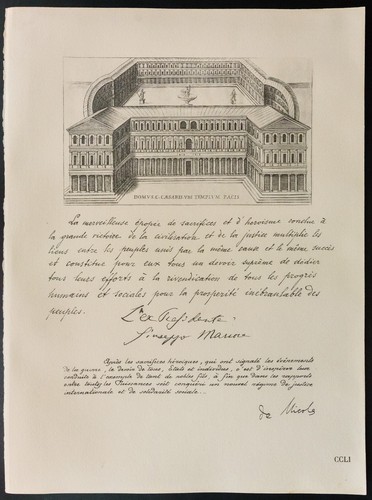 DOMVS L. CAESARIS VBI TEMPLVM PACIS
La merveilleuse épopée de sacrifices et d'héroisme conclue à
la grande victoire de la civilisation et de la justice multiplie les
liens entre les peuples unis par la même cause et le même succès
et constitue pour eux tous un devoir suprême de dédier
tous leurs efforts à la rivendication de tous les progrès
humains et sociales pour la prosperité inébranlable des
peuples.
L'ex Président
Giuseppe Marcora
Après les sacrifices héroiques, qui ont signalé les événements
de la guerre, le devoir de tous, Etats et individus, c'est d'inspirer leur
conduite à l'exemple de tant de nobles fils, à fin que dans les rapports
entre toutes les Puissances soit conquérir un nouvel régime de justice
internationale et de solidarité sociale...
de Nicola
CCLI